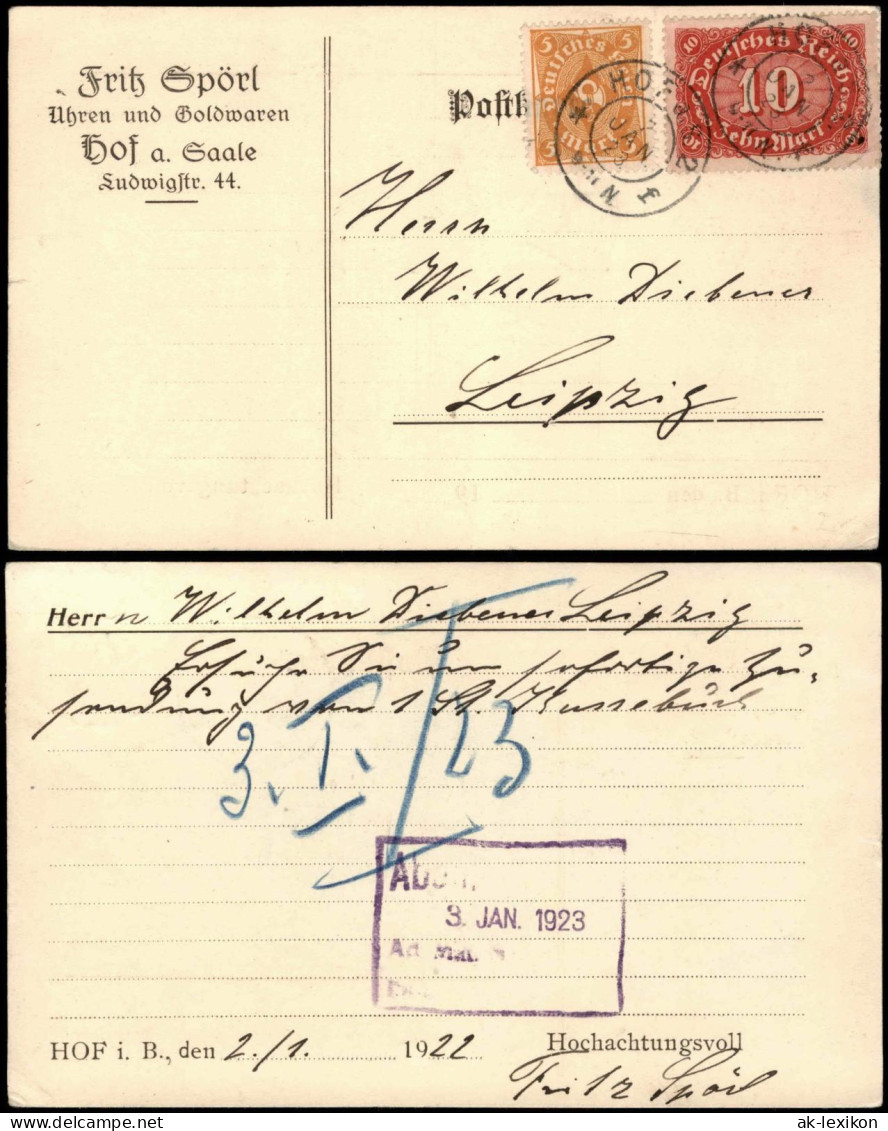 Fritz Spörl
Uhren und Goldwaren
Hof a. Saale
Ludwigstr. 44.
5 Deutsches 5
5 Mark 5
10 Deutsches Reich 10
10
Zehn Mark
HOF
JAN
HO
JAN
Herrn
Wilhelm Diebener
Leipzig
Herrn Wilhelm Diebener Leipzig
Ersuche Sie um sofortige Zu-
sendung von 1 St. Kassebuch
3. I. 23
3. JAN. 1923
HOF i. B., den 2./1. 1922 Hochachtungsvoll
Fritz Spörl
ak-lexikon.de